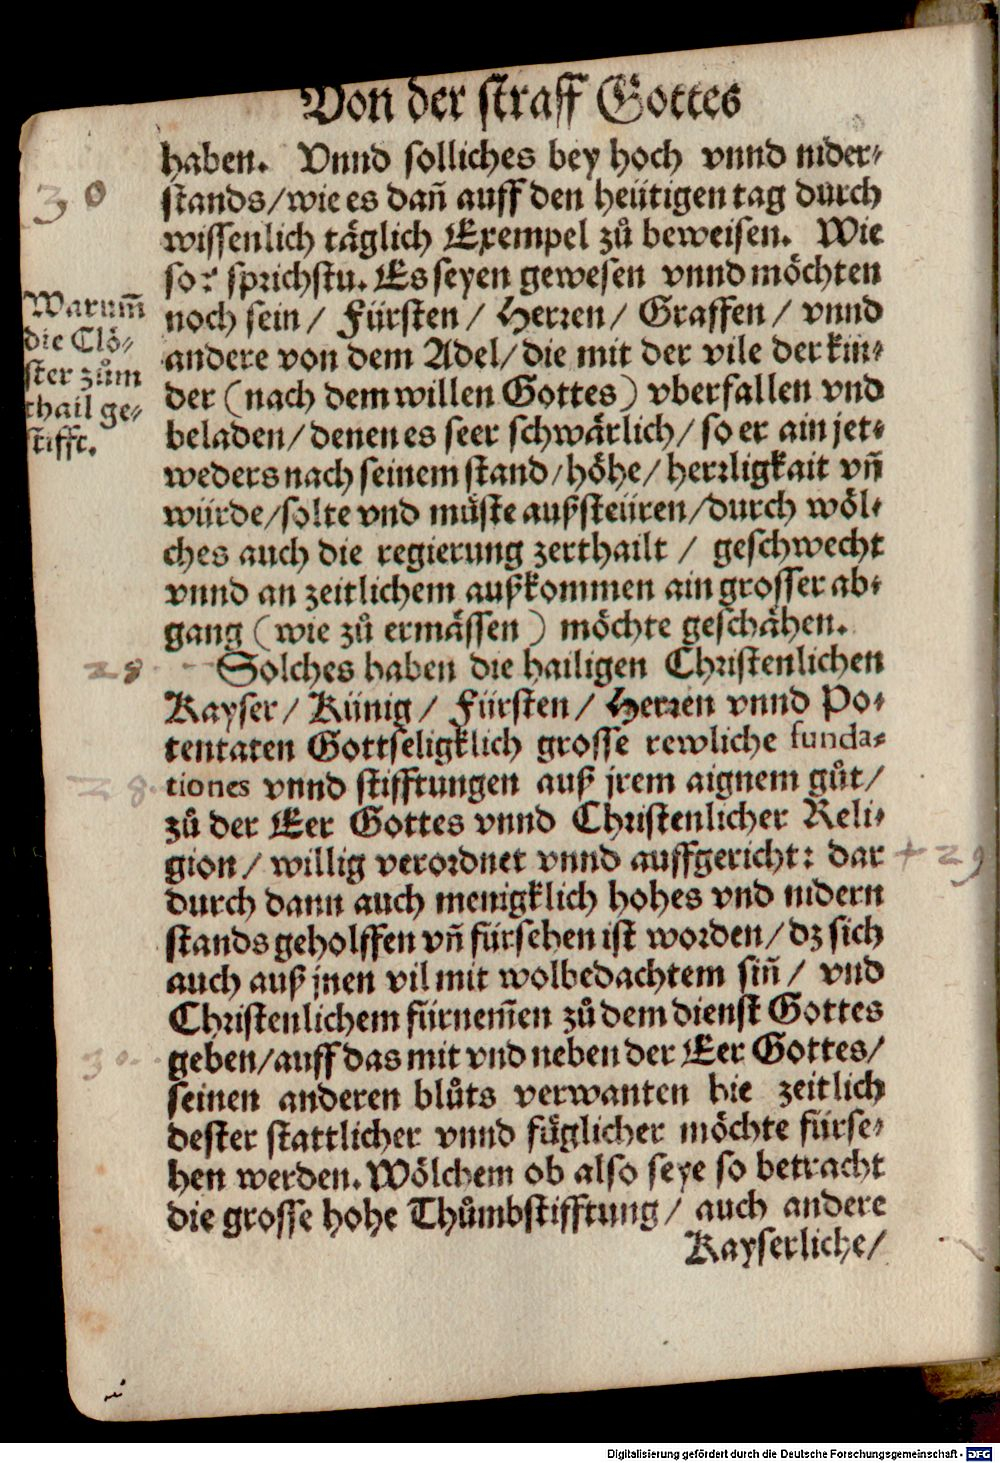 Von der straff Gottes
haben. Vnnd solliches bey hoch vnnd nider-
stands/wie es dañ auff den heütigen tag durch
wissenlich täglich Exempel zů beweisen. Wie
so? sprichstu. Es seyen gewesen vnnd möchten
noch sein/ Fürsten/ Herren/ Graffen/ vnnd
andere von dem Adel/die mit der vile der kin-
der (nach dem willen Gottes) vberfallen vnd
beladen/denen es seer schwärlich/so er ain jet-
weders nach seinem stand/höhe/herrligkait vñ
würde/solte vnd můste außsteüren/durch wöl-
ches auch die regierung zerthailt/ geschwecht
vnnd an zeitlichem außkommen ain grosser ab-
gang (wie zů ermässen) möchte geschähen.
Solches haben die hailigen Christenlichen
Kayser/ Künig/ Fürsten/ Herren vnnd Po-
tentaten Gottseligklich grosse rewliche funda-
tiones vnnd stifftungen auß jrem aignem gůt/
zů der Eer Gottes vnnd Christenlicher Reli-
gion/ willig verordnet vnnd auffgericht: dar
durch dann auch menigklich hohes vnd nidern
stands geholffen vñ fürsehen ist worden/dz sich
auch auß jnen vil mit wolbedachtem siñ/ vnd
Christenlichem fürnem̃en zů dem dienst Gottes
geben/auff das mit vnd neben der Eer Gottes/
seinen anderen blůts verwanten hie zeitlich
dester stattlicher vnnd fůglicher möchte fürse-
hen werden. Wölchem ob also seye so betracht
die grosse hohe Thůmbstifftung/ auch andere
Kayserliche/
30
Warum̃
die Clö-
ster zům
thail ge-
stifft.
28
28.
+ 29
30
Digitalisierung gefördert durch die Deutsche Forschungsgemeinschaft - DFG